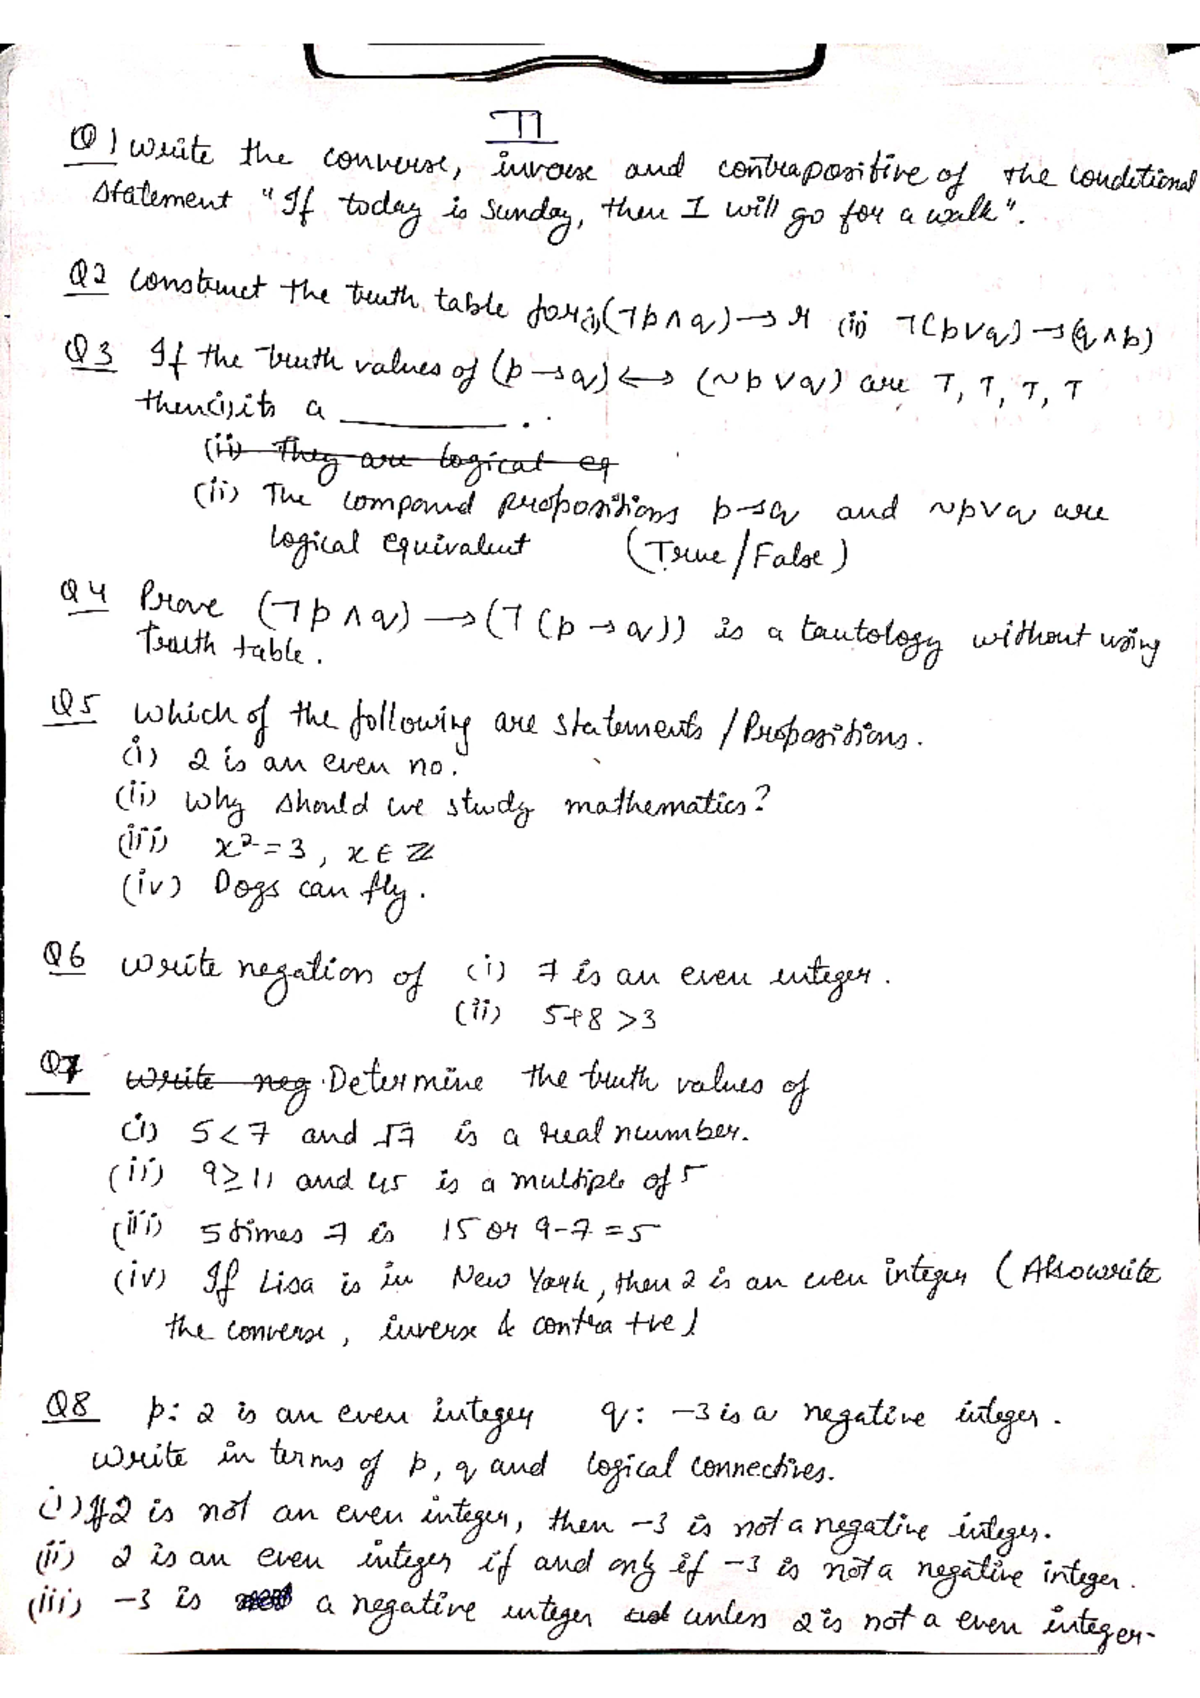 T1
Q1 Write the converse, inverse and contrapositive of the conditional
statement "If today is Sunday, then I will go for a walk".
Q2 Construct the truth table for (i) (¬p∧q)→r (ii) ¬(p∨q)→(q∧p)
Q3 If the truth values of (p→q)↔(~p∨q) are T, T, T, T
then (i) its a ________.
(ii) They are logical eq
(ii) The compound propositions p→q and ~p∨q are
logical equivalent (True/False)
Q4 Prove (¬p∧q)→(¬(p→q)) is a tautology without using
Truth table.
Q5 Which of the following are statements/Propositions.
(i) 2 is an even no.
(ii) Why should we study mathematics?
(iii) x²=3, x∈ℤ
(iv) Dogs can fly.
Q6 Write negation of (i) 7 is an even integer.
(ii) 5+8>3
Q7 Write neg. Determine the truth values of
(i) 5<7 and √7 is a real number.
(ii) 9≥11 and 45 is a multiple of 5
(iii) 5 times 7 is 15 or 9-7=5
(iv) If Lisa is in New York, then 2 is an even integer (Also write
the converse, inverse & contra +ve)
Q8 p: 2 is an even integer q: -3 is a negative integer.
Write in terms of p, q and logical connectives.
(i) If 2 is not an even integer, then -3 is not a negative integer.
(ii) 2 is an even integer if and only if -3 is not a negative integer.
(iii) -3 is a negative integer unless 2 is not a even integer.